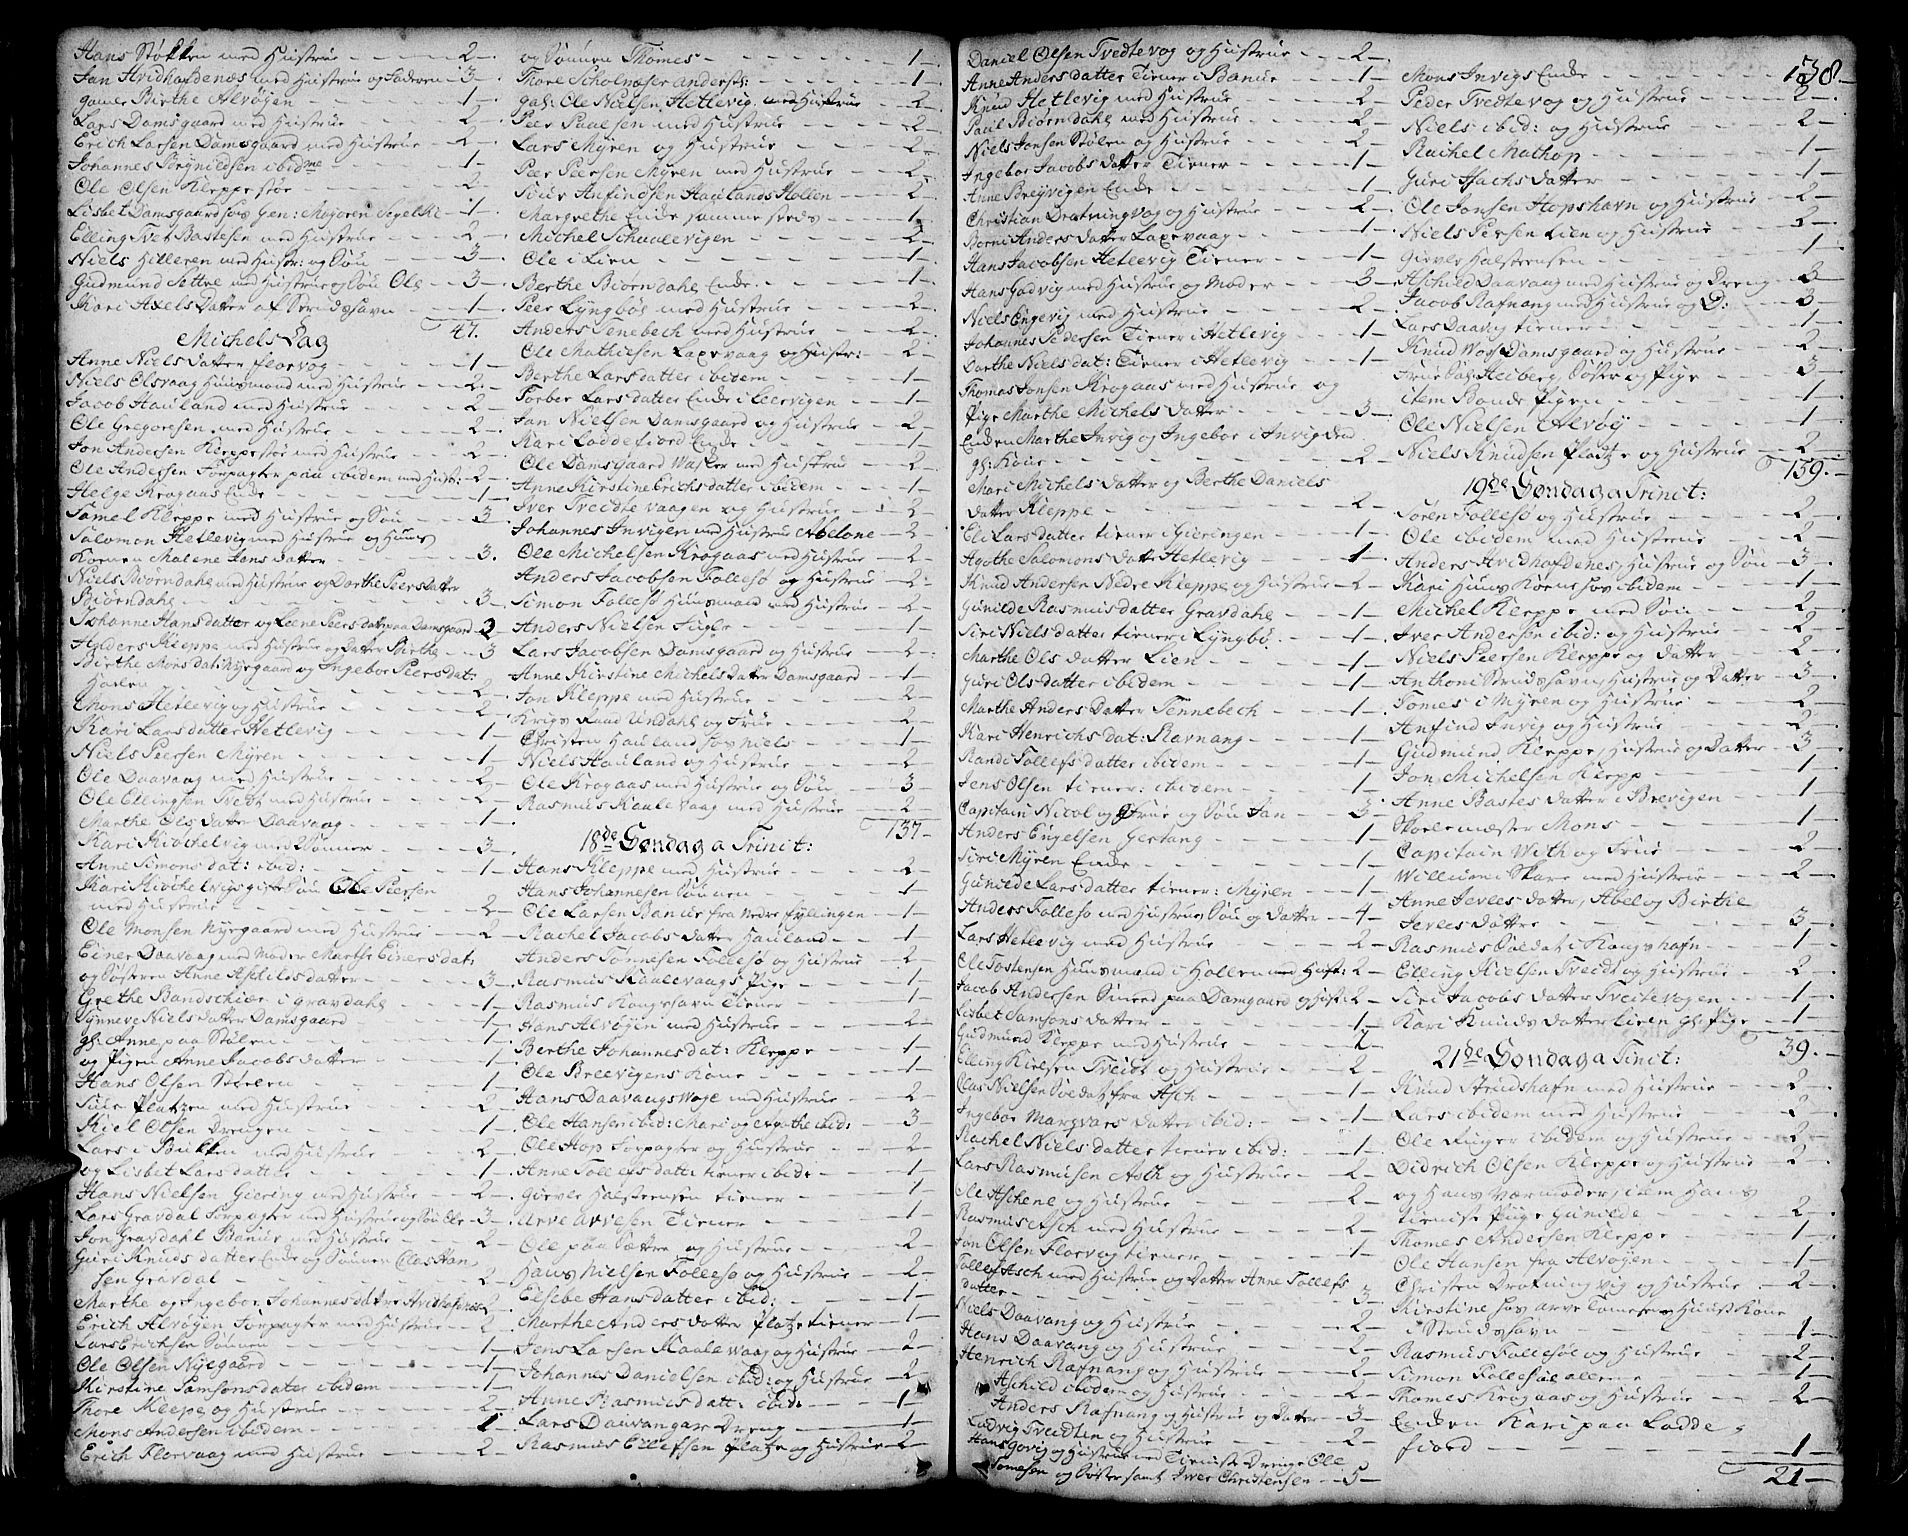 Hans Støkken med Hustrue - 2 -
Jan Hvidhofdenæs med Hustrue og Faderen - 3 -
gamle Birthe Alvøyen - 1 -
Lars Damsgaard med Hustrue - 2 -
Erich Larsen Damsgaard med Hustrue - 2 -
Johannes ibidme - 1 -
Ole Olsen Kleppestøe - 2 -
Lisbet Damsgaard hos Gen: Majoren Segelke - 1 -
Elling Tvet Bastesen med Hustrue - 2 -
Niels Hilleren med Hustr: og Søn - 3 -
Gudmund Settre med Hustrue og Søn Ole - 3 -
Kari Axels Datter af Strudshavn - 1 -
47.
Michels Dag
Anne Niels datter Florvog - 1 -
Niels Olsvaag Huusmand med Hustrue - 2 -
Jacob Hauland med Hustrue - 2 -
Ole Gregoresen med Hustrue - 2 -
Jon Andersen Kleppestøe med Hustrue - 2 -
Ole Andersen Forpagter paa ibidem med Hust: - 2 -
Helge Krogaas Enke - 1 -
Samel Kleppe med Hustrue og Søn - 3
Salomon Hetlevig med Hustrue og Huus
Konen Malene Jens datter - 3.
Niels Biørndahl med Hustrue og Dorthe Peers datter
Biørndahl - 3
Johanne Hans datter og Leene Peers datter paa Damsgaard - 2
Anders Kleppe med Hustrue og Datter Birthe - 3
Birthe Mons dat: Nyegaard og Ingebor Peers dat:
Holen - 2 -
Mons Hetlevig og Hustrue - 2 -
Kari Lars datter Hetlevig - 1 -
Niels Peersen Myren - 1 -
Ole Daavaag med Hustrue - 2 -
Ole Ellingsen Tvedt med Hustrue - 2 -
Marthe Ols datter Daavaag - 1 -
Kari Kiockelvig med Sønner - 3 -
Anne Simons dat: ibid: - 1 -
Kari Kiockelvigs gifte Søn Ole Peersen
med Hustrue - 2 -
Ole Monsen Nyegaard med Hustrue - 2 -
Einer Daavaag med Moder Marthe Einers dat:
og Søsteren Anne Aschilds datter - 3 -
Grethe Bandschier i gravdahl - 1 -
Synneve Niels datter Damsgaard - 1 -
gl: Anne paa Stølen - 1 -
og Pigen Anne Jacobs datter - 1 -
Hans Olsen Støelen - 1 -
Siur Platzen med Hustrue - 2 -
Kiel Olsen Drengen - 1 -
Lars i Bukken med Hustrue - 2 -
og Lisbet Lars datter - 1 -
Hans Nielsen Giering med Hustrue - 2 -
Lars Gravdal Forpagter med Hustrue og Søn Ole - 3 -
Jon Gravdahl Banur med Hustrue - 2 -
Guri Knuds datter Enke og Sønnen Claus Han,
sen Gravdal - 2 -
Marthe og Ingebor Johannes datre Hvidhofdenæs - 2 -
Erich Alvøyen Forpagter med Hustrue - 2 -
Lars Erichsen Sønnen - 1 -
Ole Olsen Nyegaard - 1 -
Kirstine Samsons dater ibidem - 1 -
Thore Kleppe og Hustrue - 2 -
Mons Andersen ibidem - 1 -
Erich Florvaag med Hustrue - 2
og Sønnen Thomes - 1 -
Thore Scholmæster Anderss: - 1 -
gal: Ole Nielsen Hetlevig med Hustrue - 2 -
Peer Paalsen med Hustrue - 2 -
Lars Myren og Hustrue - 2 -
Peer Peersen Myren med Hustrue - 2 -
Siur Anfindsen Haulands Hollen - 2
Margrethe Enke sammesteds - 1
Michel Schaalevigen - 2
Ole i Lien - 1
Berthe Biørndahl Enke - 1 -
Peer Lyngbøe med Hustrue - 2 -
Anders Tenebech med Hustrue - 2 -
Ole Mathiesen Laxevaag og Hustr: - 2 -
Berthe Lars datter ibidem - 1 -
Torber Lars datter Enke i Leervigen - 1 -
Jan Nielsen Damsgaard og Hustrue - 2 -
Kari Loddefiord Enke - 1
Ole Damsgaard Wasker med Hustrue - 2 -
Anne Kirstine Erichs datter ibidem - 1 -
Iver Treidtevaagen og Hustrue - 2 -
Johannes Invigen med Hustrue Abelone - 2 -
Ole Michelsen Krogaas med Hustrue - 2 -
Anders Jacobsen Follesø og Hustrue - 2 -
Simon Follesø Huusmand med Hustrue - 2 -
Anders Nielsen Fugle - 1
Lars Jacobsen Damsgaard og Hustrue - 2 -
Anne Kirstine Michels datter Damsgaard - 1 -
Jon Kleppe med Hustrue - 2
Krigs Raad Undahl og Frue - 2 -
Christen Hauland hos Niels - 1 -
Niels Hauland og Hustrue - 2 -
Ole Krogaas med Hustrue og Søn - 3
Rasmus Kaalevaag med Hustrue - 2 -
137 -
18de Søndag a Trinit:
Hans Kleppe med Hustrue - 2
Hans Johannesen Sønnen - 1
Ole Larsen Banur fra Nedre Fyllingen - 1 -
Rachel Jacobs datter Hauland - 1
Anders Tonnesen Follesø og Hustrue - 2 -
Rasmus Kaalevaags Pige - 1
Rasmus Kongshavn Tiener - 1
Hans Alvøyen med Hustrue - 2 -
Berthe Johannes dat: Kleppe - 1
Ole Breevigens Kone - 1
Hans Daavangs Woje med Hustrue - 2
Ole Hansen ibid: Mari og Agathe ibid: - 3
Ole Hop Forpagter og Hustrue - 2
Anne Tollefs datt: tiener ibid: - 1
Giever Halsteensen tiener - 1
Arve Arvesen Tiener - 1
Ole paa Sættre og Hustrue - 2 -
Hans Nielsen Follesø og Hustrue - 2 -
Elsebe Hans datter ibid: - 1 -
Marthe Anders datter Platze tiener - 1 -
Jens Larsen Kaalevaag og Hustrue - 2 -
Johannes Danielsen ibid: og Hustrue - 2
Anne Rasmus datt: ibid: - 1 -
Lars Daavangar Dreng - 1 -
Rasmus Ellefsen Platze og Hustrue - 2 -
Daniel Olsen Tvedtevog og Hustrue - 2 -
Anne Anders datter Tiener i Banur - 1 -
Knud Hetlevig med Hustrue - 2 -
Paul Biørndahl med Hustrue - 2 -
Niels Jansen Stølen og Hustrue - 2 -
Ingebor Jacobs datter Tiener - 1 -
Anne Breyvigen Enke - 1 -
Christian Dratningvog og Hustrue - 2 -
Borni Anders datter Laxevaag - 1 -
Hans Jacobsen Hetlevig Tiener - 1 -
Hans Godvig med Hustrue og Moder - 3 -
Niels Engevig med Hustrue - 2 -
Johannes Pedersen Tiener i Hetlevig - 1 -
Dorthe Niels dat: Tiener i Hetlevig - 1 -
Thomas Jonsen Krogaas med Hustrue og
Pige Marthe Michels datter - 3 -
Enken Marthe Invig og Ingebor i Invig den
gl: Kone - 2 -
Mari Michels datter og Berthe Daniels
datter Kleppe - 2 -
Eli Lars datter tiener i Gieringen - 1 -
Agathe Salomons datter Hetlevig - 1 -
Knud Andersen Nedre Kleppe og Hustrue - 2 -
Gunilde Rasmus datter Gravdahl - 1 -
Siri Niels datter tiener i Lyngbø - 1 -
Marthe Ols datter Lien - 1 -
Guri Ols datter ibidem - 1 -
Marthe Anders Datter Tennebech - 1 -
Kari Henrichs dat: Ravnang - 1 -
Randi Tollefs datter ibidem - 1 -
Jens Olsen tiener: ibidem - 1 -
Capitain Nicol og Frue og Søn Jan - 3 -
Anders Engelsen Gertang - 1
Siri Myren Enke - 1 -
Gunilde Lars datter tiener: Myren - 1 -
Anders Follesø med Hustrue, Søn og Datter - 4 -
Lars Hetlevig med Hustrue - 2 -
Ole Tostensen Huusmand i Hollen med Hust: 2 -
Jacob Andersen Smed paa Damgaard og Hust: 2 -
Lisbet Samsons datter - 1 -
Gudmund Kleppe med Hustrue - 2 -
Elling Kielsen Treidt og Hustrue - 2 -
Claus Nielsen Soldat fra Asch - 1 -
Ingebor Margvars datter ibid: - 1 -
Rachel Niels datter tiener ibid: - 1 -
Lars Rasmusen Asch og Hustrue - 2 -
Ole Aschene og Hustrue - 2 -
Rasmus Asch med Hustrue - 2 -
Jon Olsen Florvog tiener - 1 -
Tollef Asch med Hustrue og Datter Anne Tollefs
datter - 3 -
Niels Daavang og Hustrue - 2 -
Hans Daavang og Hustrue - 2 -
Henrich Rafnang og Hustrue - 2 -
Aschild ibidem og Hustrue - 2 -
Anders Rafnang og Hustrue og Datter - 3 -
Ludvig Tveidten og Hustrue - 2 -
Hans Govig og Hustrue med Tieniste Drenge Ole
Tomesen og Søster samt Iwer Christensen - 5 -
138 -
Mons Invigs Enke - 1
Peder Tvedtevog og Hustrue - 2 -
Niels ibid: og Hustrue - 2 -
Rachel Mathop - 1 -
Guri Isachs datter - 1 -
Ole Jonsen Hopshavn og Hustrue - 2 -
Niels Persen Lien og Hustrue - 2 -
Giever Halsteensen - 1
Aschild Daavaag med Hustrue og Dreng - 3
Jacob Rafnang med Hustrue og D: - 3 -
Lars Daavig tiener - 1 -
Knud Wos Damsgaard og Hustrue - 2
Frue Sal: Heiberg, Søster og Pige - 3 -
item Bonde Pigen - 1
Ole Nielsen Alvøy - 1
Niels Knudsen Platze og Hustrue - 2 -
159. -
19de Søndag a Trinit:
Søren Follesø og Hustrue - 2 -
Ole ibidem med Hustrue - 2 -
Anders Hvidhofdenes, Hustrue og Søn - 3 -
Kari Huus Kone hos ibidem - 1 -
Michel Kleppe med Søn - 2 -
Iver Andersen ibid: og Hustrue - 2 -
Niels Peersen Kleppe og datter - 2 -
Anthoni Strudshavn, Hustrue og Datter - 3 -
Tomes i Myren og Hustrue - 2
Anfind Invig og Hustrue - 2 -
Gudmund Kleppe, Hustrue og Datter - 3 -
Jon Michelsen Klepp - 1
Anne Bastes datter i Brevigen - 1
Skolemæster Mons - 1
Capitain With og Frue - 2
Willum Skare med Hustrue - 2 -
Anne Jerles datter, Abel og Birthe
Jerles datter - 3 -
Rasmus Soldat i Kongshafn - 1
Elling Kielsen Treidt og Hustrue - 2 -
Siri Jacobs datter Treitevogen - 1 -
Kari Knuds datter Lien gl: Pige - 1 -
39. -
21de Søndag a Tinit:
Knud Strudshafn med Hustrue - 2 -
Lars ibidem med Hustrue - 2 -
Ole Ruger ibidem og Hustrue - 2 -
Didrich Olsen Kleppe og Hustrue - 2 -
og Hans Værmoder, item Hans
tieniste Piige Gunilde - 2 -
Thomes Andersen Kleppe - 1 -
Ole Hansen fra Alvøyen - 1 -
Christen Drotningvig og Hustrue - 2 -
Kirstine hos Arve Tomesen Huus Kone
i Strudshavn - 1 -
Rasmus Follesøe og Hustrue - 2 -
Simon Follesøe allene - 1 -
Thomes Krogaas og Hustrue - 2
Enken Kari paa Lodde,
fiord - 1 -
21 -